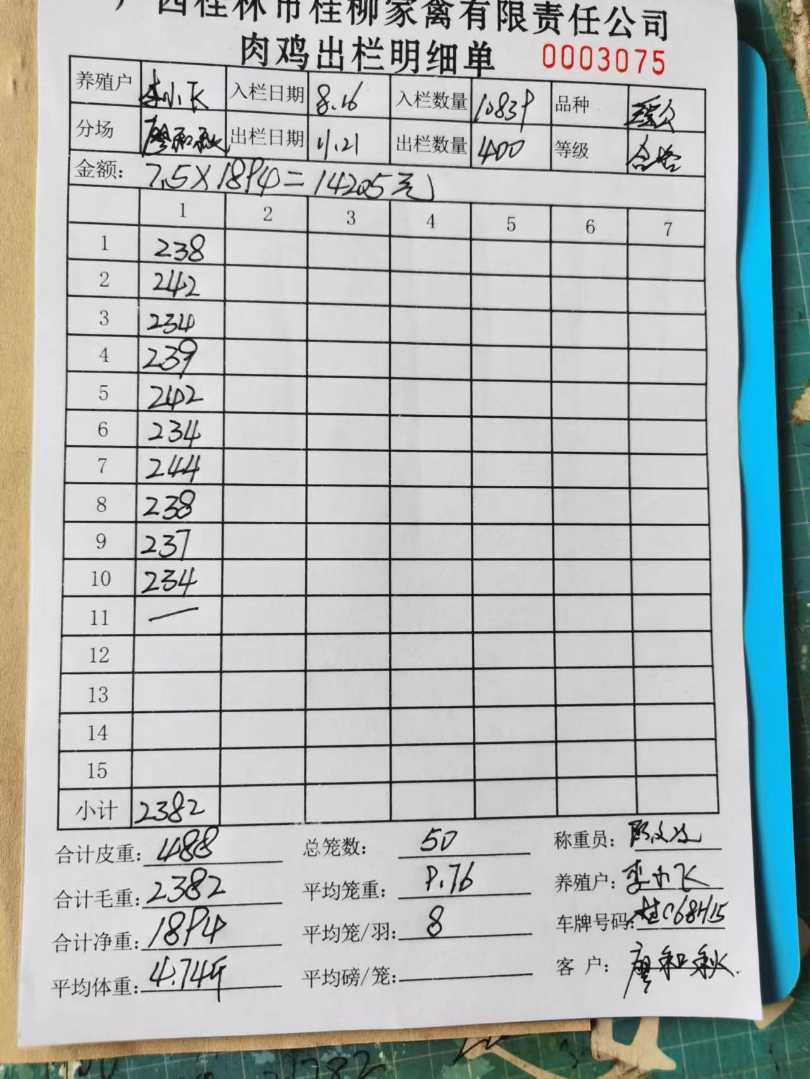 广西桂林市桂柳家禽有限责任公司
肉鸡出栏明细单 0003075
养殖户 李小飞 入栏日期 8.16 入栏数量 10839 品种
分场 廖和秋 出栏日期 11.21 出栏数量 400 等级 合格
金额: 7.5×1894=14205元
1 2 3 4 5 6 7
1 238
2 242
3 234
4 239
5 242
6 234
7 244
8 238
9 237
10 234
11 —
12
13
14
15
小计 2382
合计皮重: 488 总笼数: 50 称重员:
合计毛重: 2382 平均笼重: 9.76 养殖户: 李小飞
合计净重: 1894 平均笼/羽: 8 车牌号码: 桂C68H15
平均体重: 4.74斤 平均磅/笼: 客户: 廖和秋